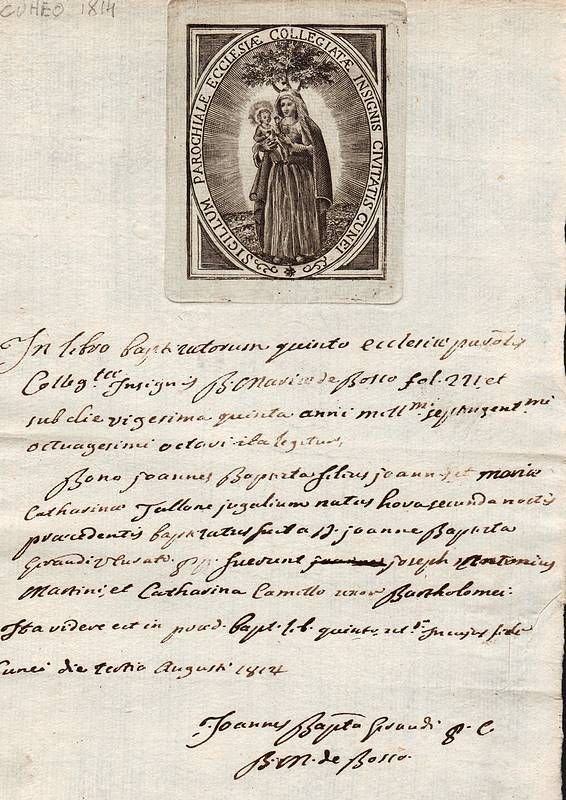 CUNEO 1814
SIGILLUM PAROCHIALE ECCLESIÆ COLLEGIATÆ INSIGNIS CIVITATIS CUNEI
In libro baptizatorum quinto ecclesiæ paro.lis
Colleg.tæ Insignis B. Mariæ de Bosco fol. 221 et
sub die vigesima quinta anni mill.mi septingent.mi
octuagesimi octavi ita legitur,
Bono joannes Baptista filius joannis et mariæ
Catharinæ Tallone jugalium natus hora secunda noctis
præcedentis baptizatus fuit a D. joanne Baptista
Giraudi pp. fuerunt joseph Antonius
Martini et Catharina Camillo uxor Bartholomei.
Ita videre est in præd. bapt. lib. quinto in cujus fidem
Cunei die tertia Augusti 1814
Joannes Bapta Giraudi p. C.
B. M. de Bosco.